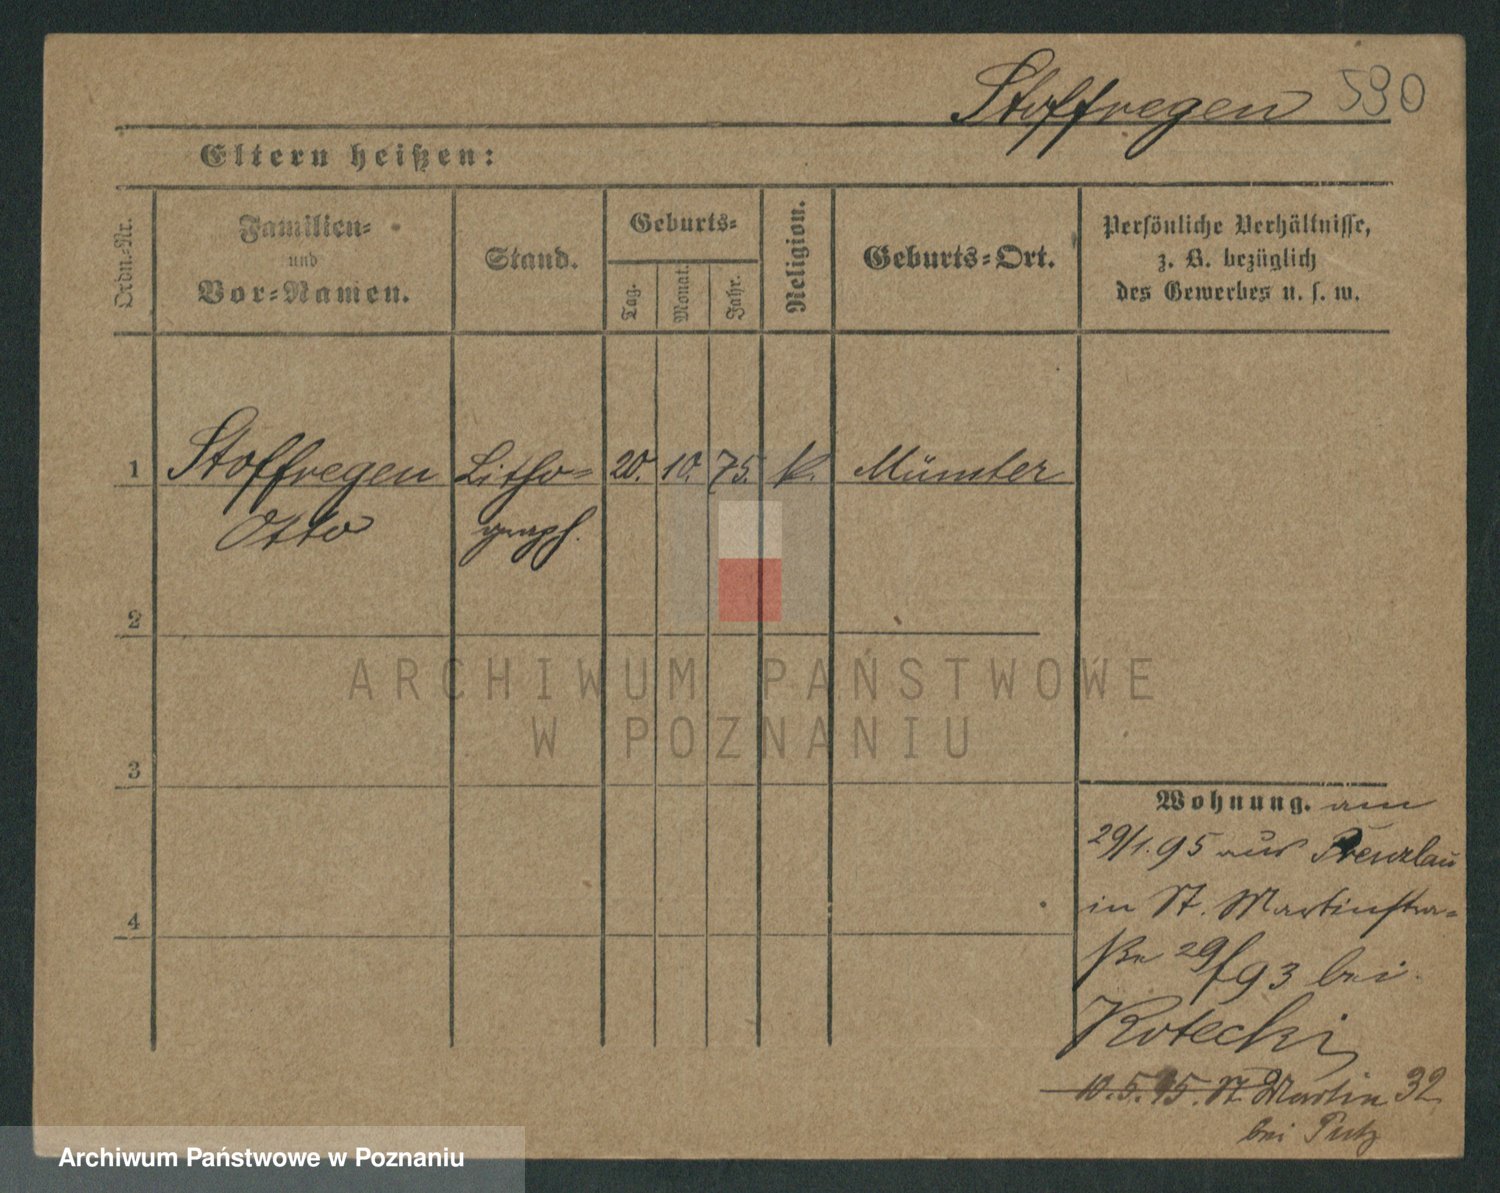 Stoffregen 590
Eltern heißen:
Ordn.-Nr.
Familien-
und
Vor-Namen.
Stand.
Geburts-
Tag.
Monat.
Jahr.
Religion.
Geburts-Ort.
Persönliche Verhältnisse,
z. B. bezüglich
des Gewerbes u. s. w.
1 Stoffregen Litho- 20. 10. 75. k. Münster
Otto graph.
2
3
4
ARCHIWUM PAŃSTWOWE
W POZNANIU
Wohnung. am
29/1.95 aus Prenzlau
in St. Martinstra-
ße 29/93 bei
Kotecki
10.5.95. St. Martin 32
bei
Archiwum Państwowe w Poznaniu